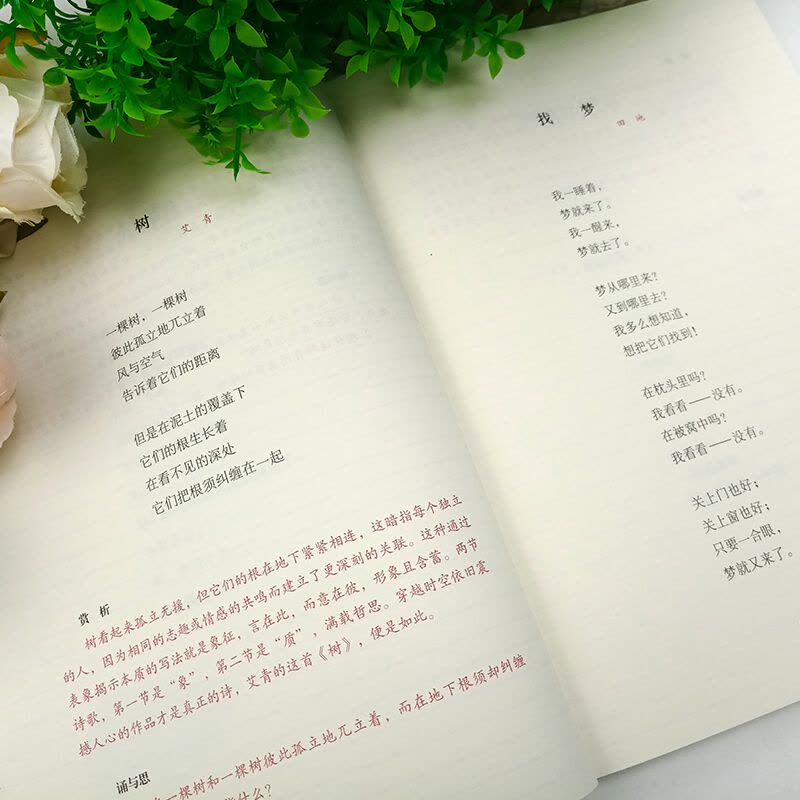 树
艾青
一棵树，一棵树
彼此孤立地兀立着
风与空气
告诉着它们的距离
但是在泥土的覆盖下
它们的根生长着
在看不见的深处
它们把根须纠缠在一起
赏析
树看起来孤立无援，但它们的根在地下紧紧相连，这暗指每个独立
的人，因为相同的志趣或情感的共鸣而建立了更深刻的关联。这种通过
表象揭示本质的写法就是象征，言在此，而意在彼，形象且含蓄。两节
诗歌，第一节是“象”，第二节是“质”，满载哲思。穿越时空依旧震
撼人心的作品才是真正的诗，艾青的这首《树》，便是如此。
诵与思
一棵树和一棵树彼此孤立地兀立着，而在地下根须却纠缠
什么？
找梦
田地
我一睡着，
梦就来了。
我一醒来，
梦就去了。
梦从哪里来？
又到哪里去？
我多么想知道，
想把它们找到！
在枕头里吗？
我看看——没有。
在被窝中吗？
我看看——没有。
关上门也好；
关上窗也好；
只要一合眼，
梦就又来了。